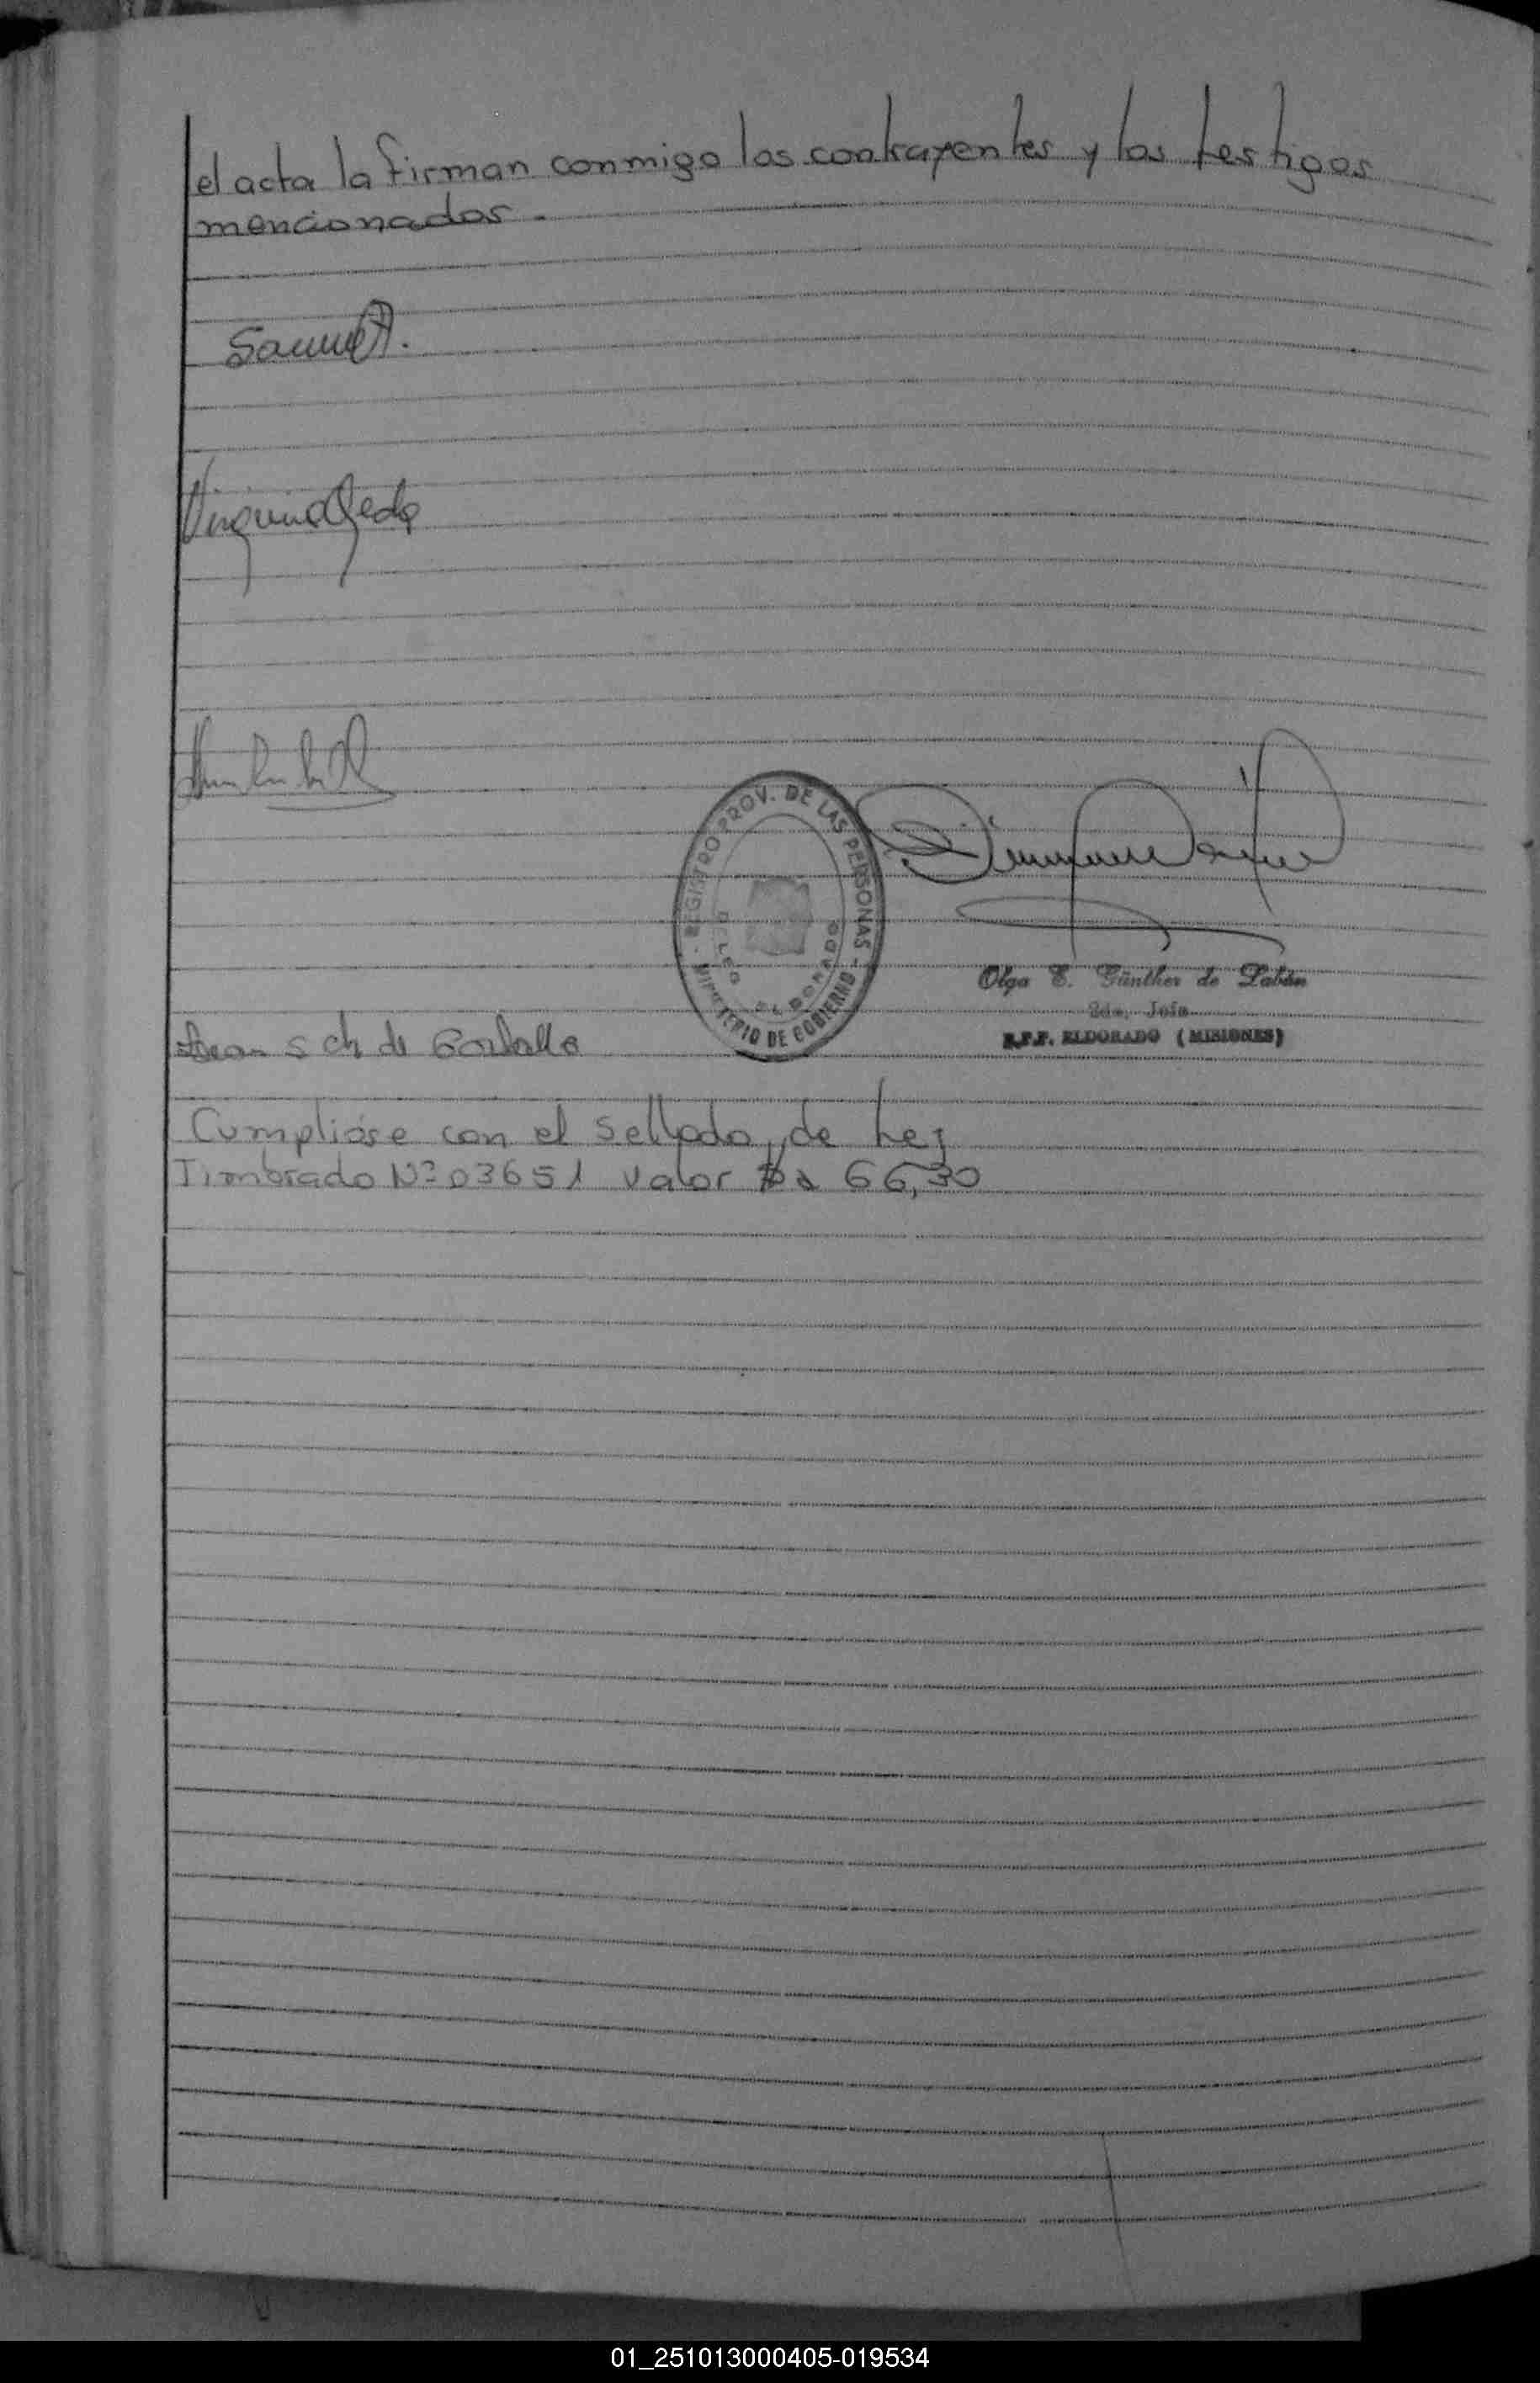 el acta la firman conmigo los contrayentes y los testigos
mencionados.
Samuel
Virginia Ojeda
REGISTRO PROV. DE LAS PERSONAS - MINISTERIO DE GOBIERNO -
DELEG ELDORADO
Olga E. Günther de
2da. Jefa
R.P.P. ELDORADO (MISIONES)
Sch de
Cumplióse con el Sellado de Ley
Timbrado Nº 03651 Valor $a 66,30
01_251013000405-019534